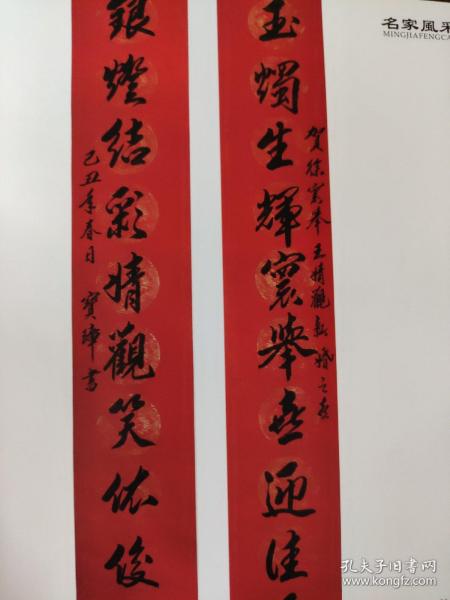 名家風采
MINGJIAFENGCA
玉燭生輝寰舉喜迎佳
賀徐寰舉王情觀新婚之喜
銀燈結彩情觀笑依俊
己丑年春日 寶璋書
孔夫子旧书网
www.kongfz.com